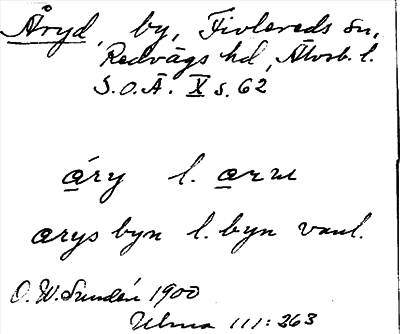 Åryd, by, Fivlereds sn,
Redvägs hd, Älvsb. l.
S.O.Ä. X s. 62
áry l. aru
arys byn l. byn vanl.
O. W. Sundén 1900
Ulma 111:263